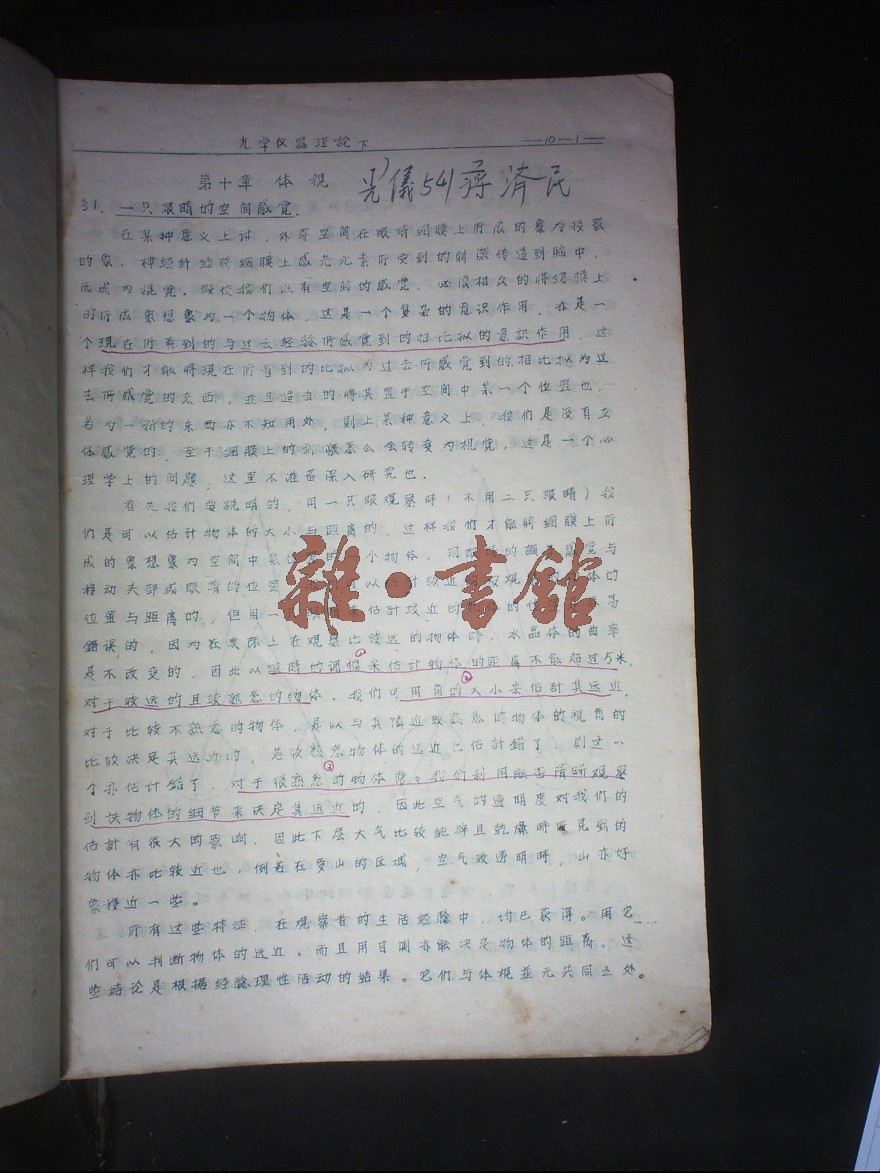 光学仪器理论下 —10—1—
第十章 体视 光儀541 蒋济民
§1. 一只眼睛的空间感觉.
在某种意义上讲,外界空间在眼睛细膜上所成的象为投影
的象.神经纤维将细膜上感光元素所受到的刺激传送到脑中,
而成为视觉.假使我们没有空间的感觉.必没相应的将细膜上
的所成象想象为一个物体.这是一个复杂的意识作用.亦是一
个现在所看到的与过去经验所感觉到的相比拟的意识作用.这
样我们才能将现在所看到的比拟为过去所感觉到的相比拟为过
去所感觉的东西,并且适当的将其置于空间中某一个位置也.
若为一新的东西亦不知用处,则上某种意义上,我们是没有立
体感觉的.至于细膜上的刺激怎么会转变为视觉,这是一个心
理学上的问题,这里不准备深入研究也.
首先我们要说明的,用一只眼观察时(不用二只眼睛)我
们是可以估计物体的大小与距离的.这样我们才能将细膜上所
成的象想象为空间中某位置的一个物体.用眼睛的调节感觉与
移动头部或眼睛的位置 可以估计较近的 观 体的
位置与距离的,但用一 来估计较近的物体的位
错误的,因为在实际上在观察比较远的物体时,水晶体的曲率
是不改变的.因此以眼睛的调幅来估计物体的距离不能超过5米.
对于较远的且较熟悉的物体,我们可用角的大小来估计其远近.
对于比较不熟悉的物体,是以与其附近较熟悉的物体的视角的
比较决定其远近的,若该熟悉物体的远近已估计错了,则这一
个亦估计错了.对于很熟悉的物体费々我们利用能否清晰观察
到该物体的细节来决定其远近的.因此空气的透明度对我们的
估计有很大的影响.因此下层大气比较纯粹且乾燥时所见到的
物体亦比较近也.例若在多山的区域,空气很透明时,山亦好
象接近一些。
所有这些特征,在观察者的生活经验中,均已获得。用它
们可以判断物体的远近。而且用目测亦能决定物体的距离.这
些结论是根据经验理性活动的结果。它们与体视并无共同之处。
雜·書館